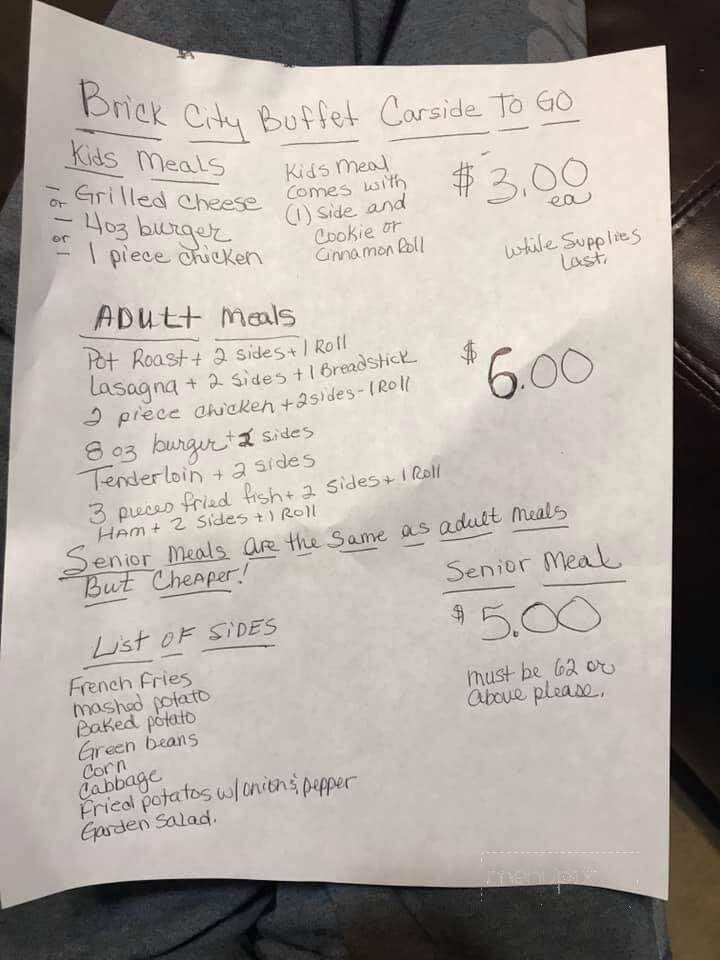 Brick City Buffet Carside To GO
Kids Meals
- Grilled cheese
or
- 4oz burger
or
- 1 piece chicken
Kids meal
comes with
(1) side and
Cookie or
Cinnamon Roll
$3.00
ea
while Supplies
Last.
ADULt Meals
Pot Roast + 2 sides + 1 Roll
Lasagna + 2 sides + 1 Breadstick
2 piece chicken + 2 sides - 1 Roll
8 oz burger + 2 sides
Tenderloin + 2 sides
3 pieces fried fish + 2 sides + 1 Roll
HAM + 2 sides + 1 Roll
$6.00
Senior Meals are the same as adult meals
But Cheaper!
Senior Meal
$5.00
must be 62 or
above please.
List OF SiDES
French Fries
mashed potato
Baked potato
Green beans
Corn
Cabbage
Fried potatos w/onion & pepper
Garden Salad.
menupix